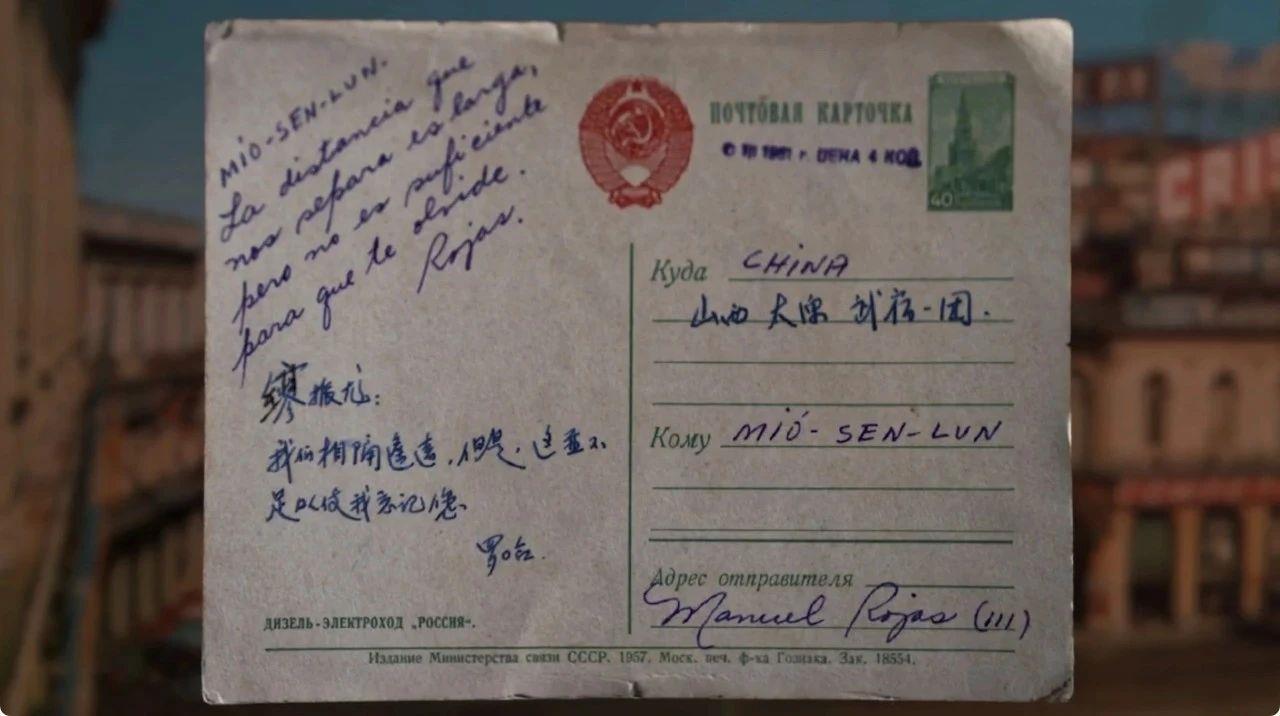 MIÓ-SEN-LUN.
La distancia que
nos separa es larga,
pero no es suficiente
para que te olvide.
Rojas.
振龙:
我们相隔遥远,但是,这并不
足以使我忘记您
ДИЗЕЛЬ-ЭЛЕКТРОХОД „РОССИЯ“.
ПОЧТОВАЯ КАРТОЧКА
1961 г. ЦЕНА 4 КОП.
40
Куда CHINA
山西 太原 武宿一团.
Кому MIÓ-SEN-LUN
Адрес отправителя
Manuel Rojas (III)
Издание Министерства связи СССР. 1957. Моск. печ. ф-ка Гознака. Зак. 18554.
CRIS